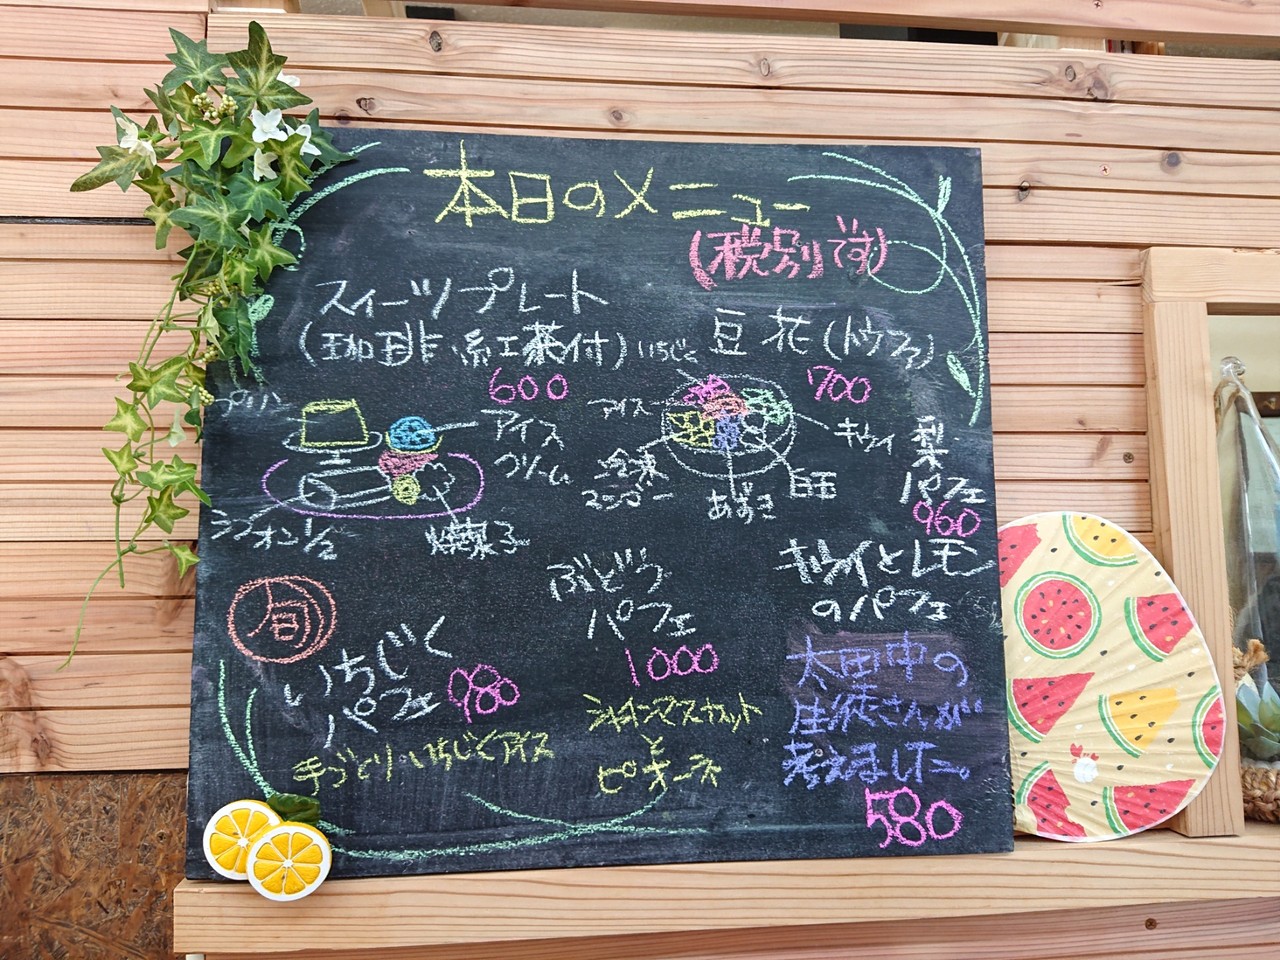 本日のメニュー
(税別です)
スイーツプレート
(珈琲 紅茶付)
600
プリン
アイス
クリーム
シフォン1/2
焼菓子
豆花(トウファ)
700
いちじく
アイス
キウイ
冷凍
マンゴー
あずき
白玉
梨
パフェ
960
旬
いちじく
パフェ 980
手づくりいちじくアイス
ぶどう
パフェ
1000
シャインマスカット
と
ピオーネ
キウイとレモン
のパフェ
太田中の
生徒さんが
考えました。
580